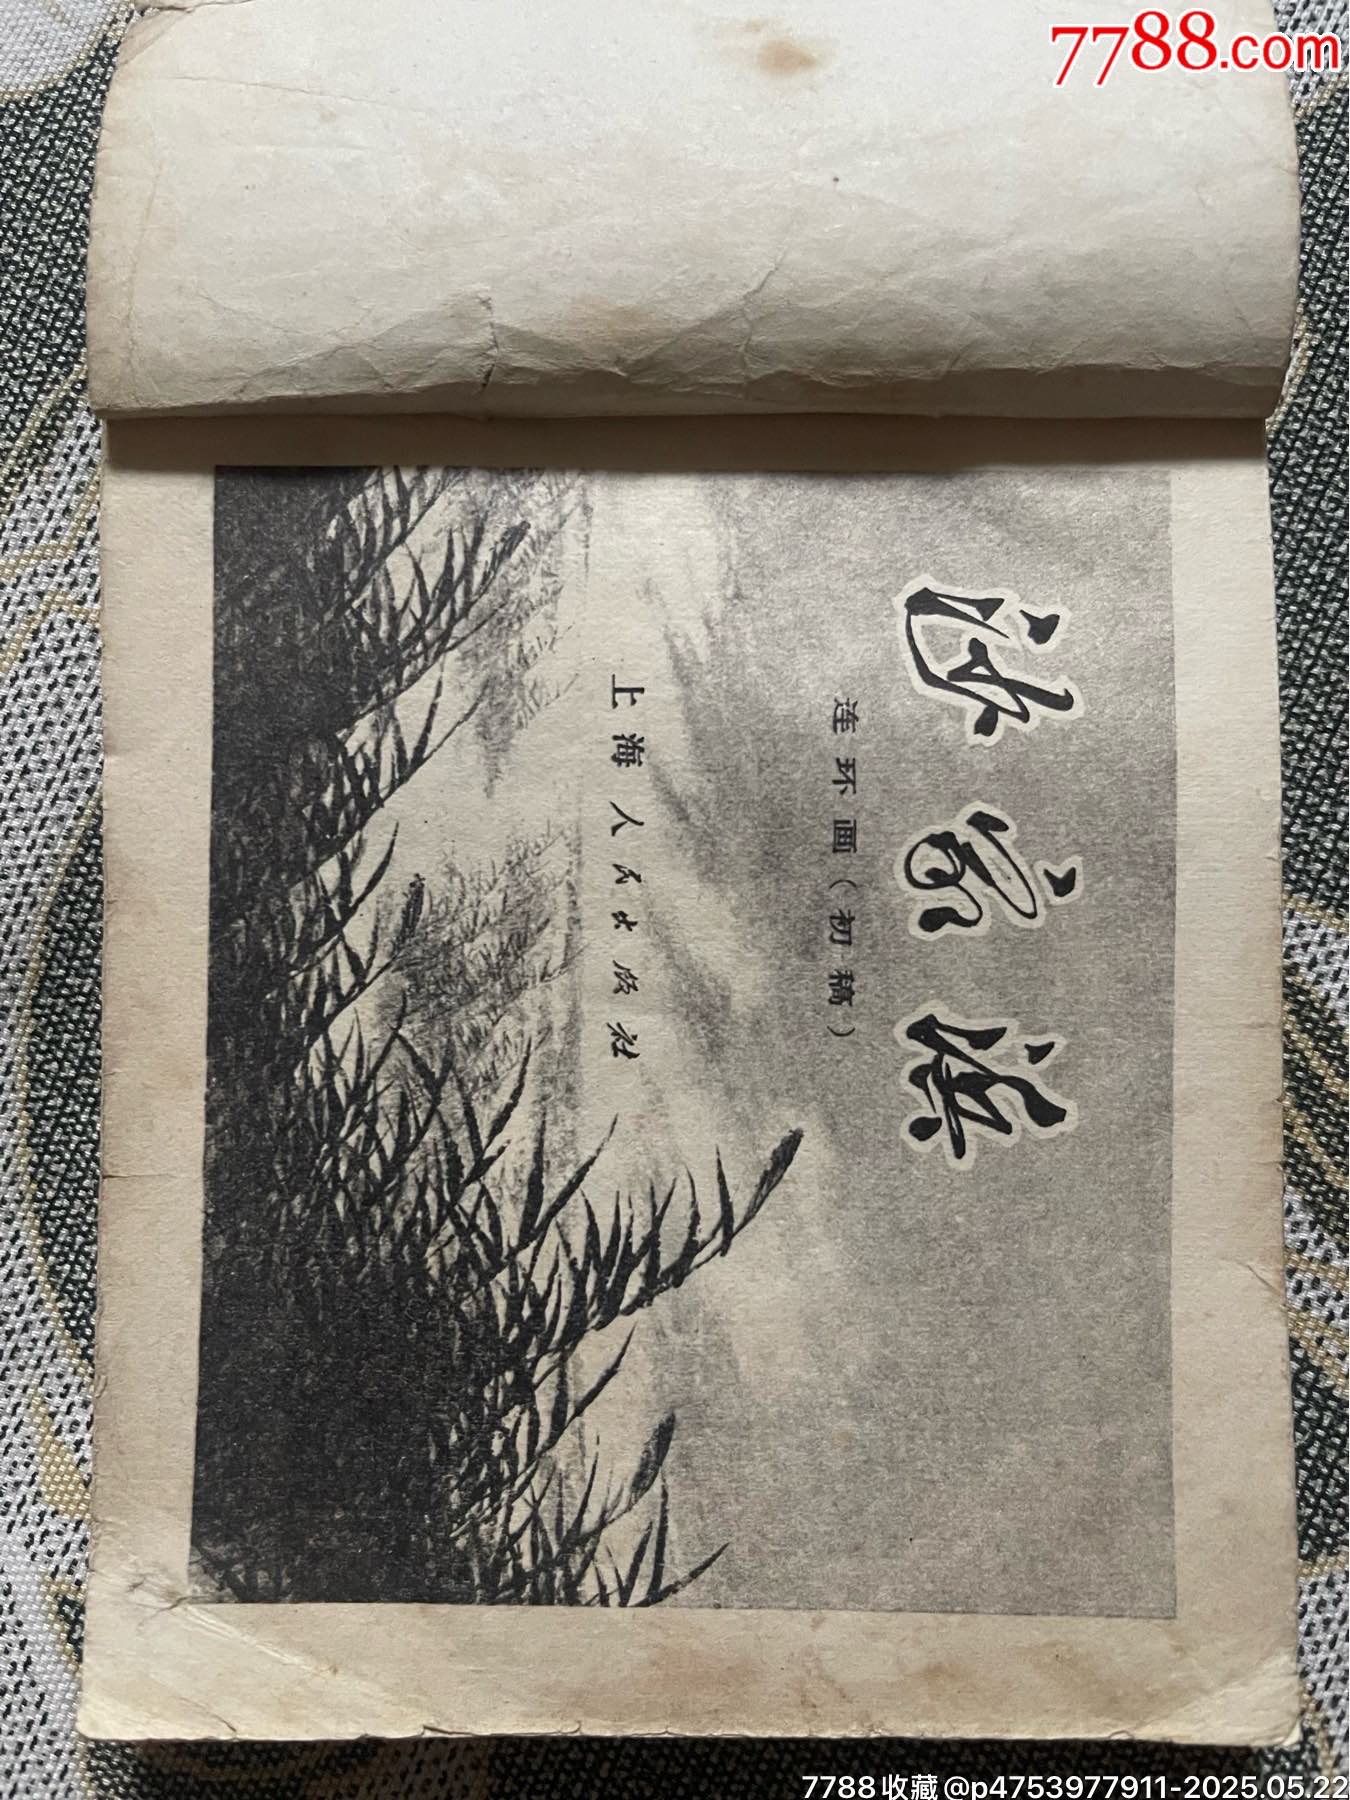 7788.com
沙家浜
连环画（初稿）
上海人民出版社
7788收藏@p4753977911-2025.05.22